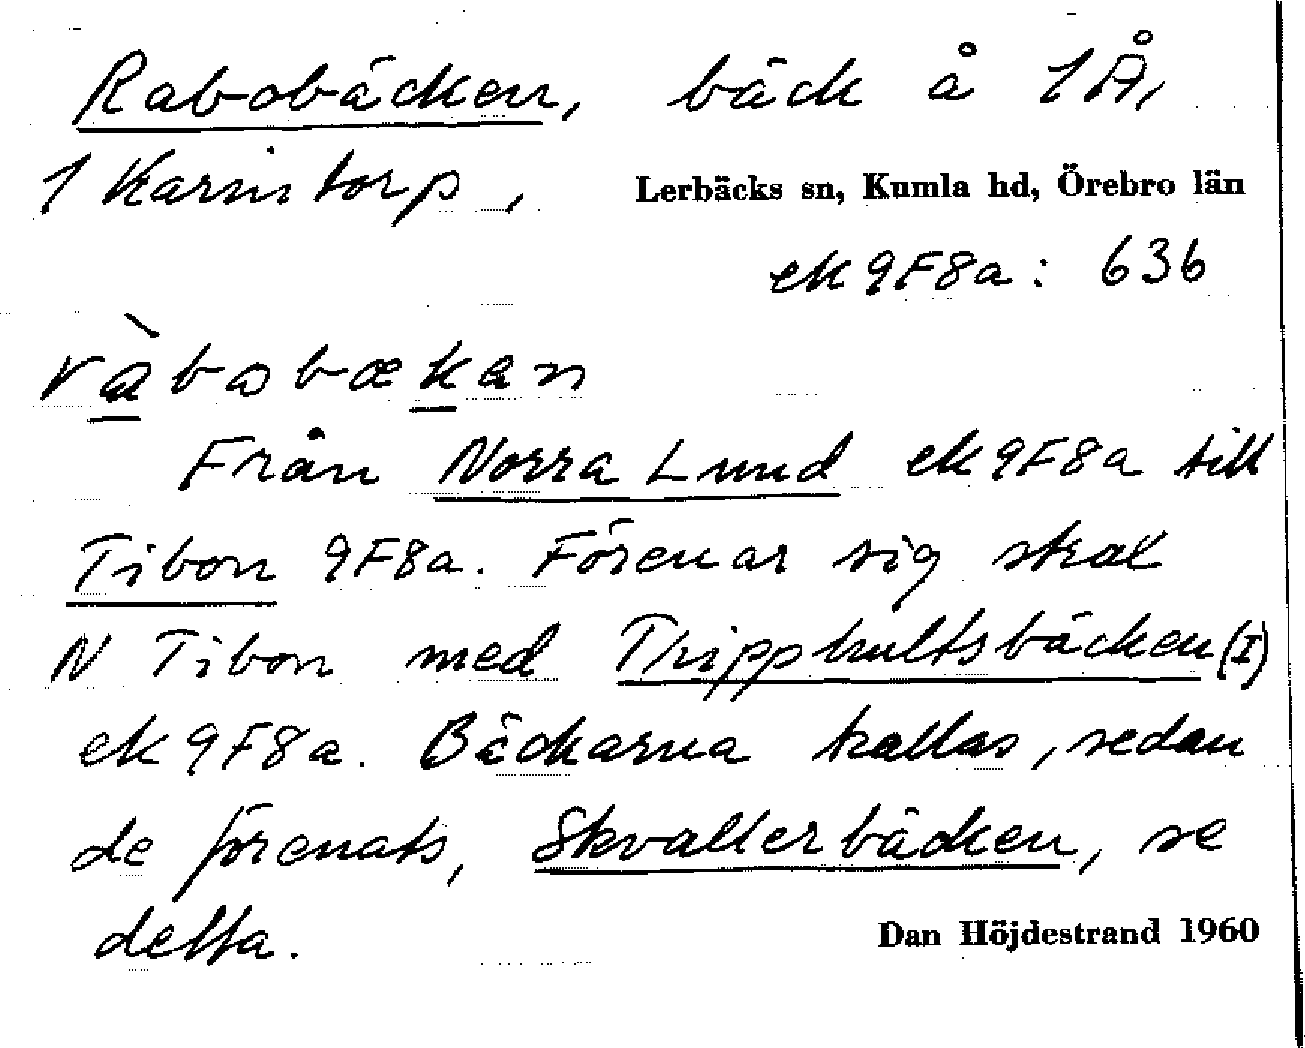 Rabobäcken, bäck å 1 Å,
1 Karintorp,
Lerbäcks sn, Kumla hd, Örebro län
ek 9F8a: 636
ràbobækan
Från Norra Lund ek 9F8a till
Tibon 9F8a. Förenar sig strax
N Tibon med Thipphultsbäcken (I)
ek 9F8a. Bäckarna kallas, sedan
de förenats, Skvallerbäcken, se
detta.
Dan Höjdestrand 1960